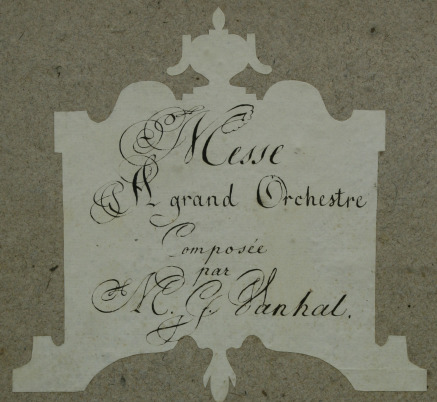 Messe
A grand Orchestre
Composée
par
M. G. Vanhal.